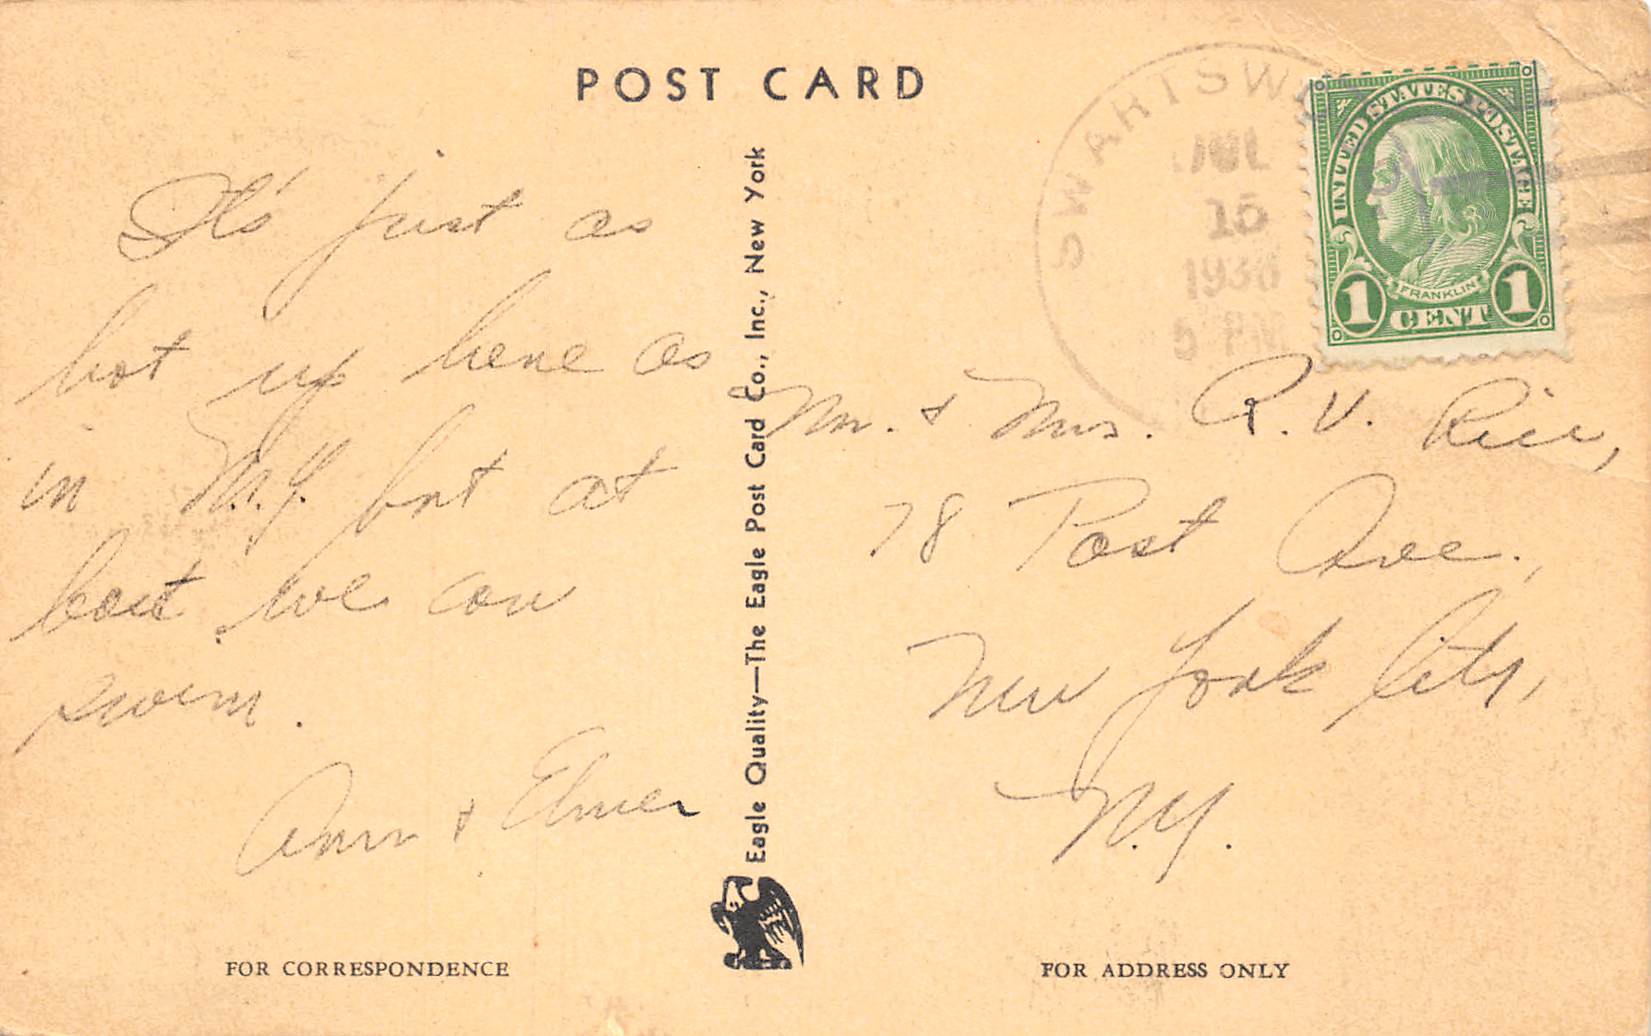 POST CARD
It's just as
hot up here as
in N.Y. but at
least we can
swim.
Ann & Elmer
FOR CORRESPONDENCE
Eagle Quality—The Eagle Post Card Co., Inc., New York
SWARTSW
JUL
15
1936
5 PM
UNITED STATES POSTAGE
FRANKLIN
1 CENT 1
Mr. & Mrs. R. V. Rice,
78 Post Ave.,
New York City,
N.Y.
FOR ADDRESS ONLY